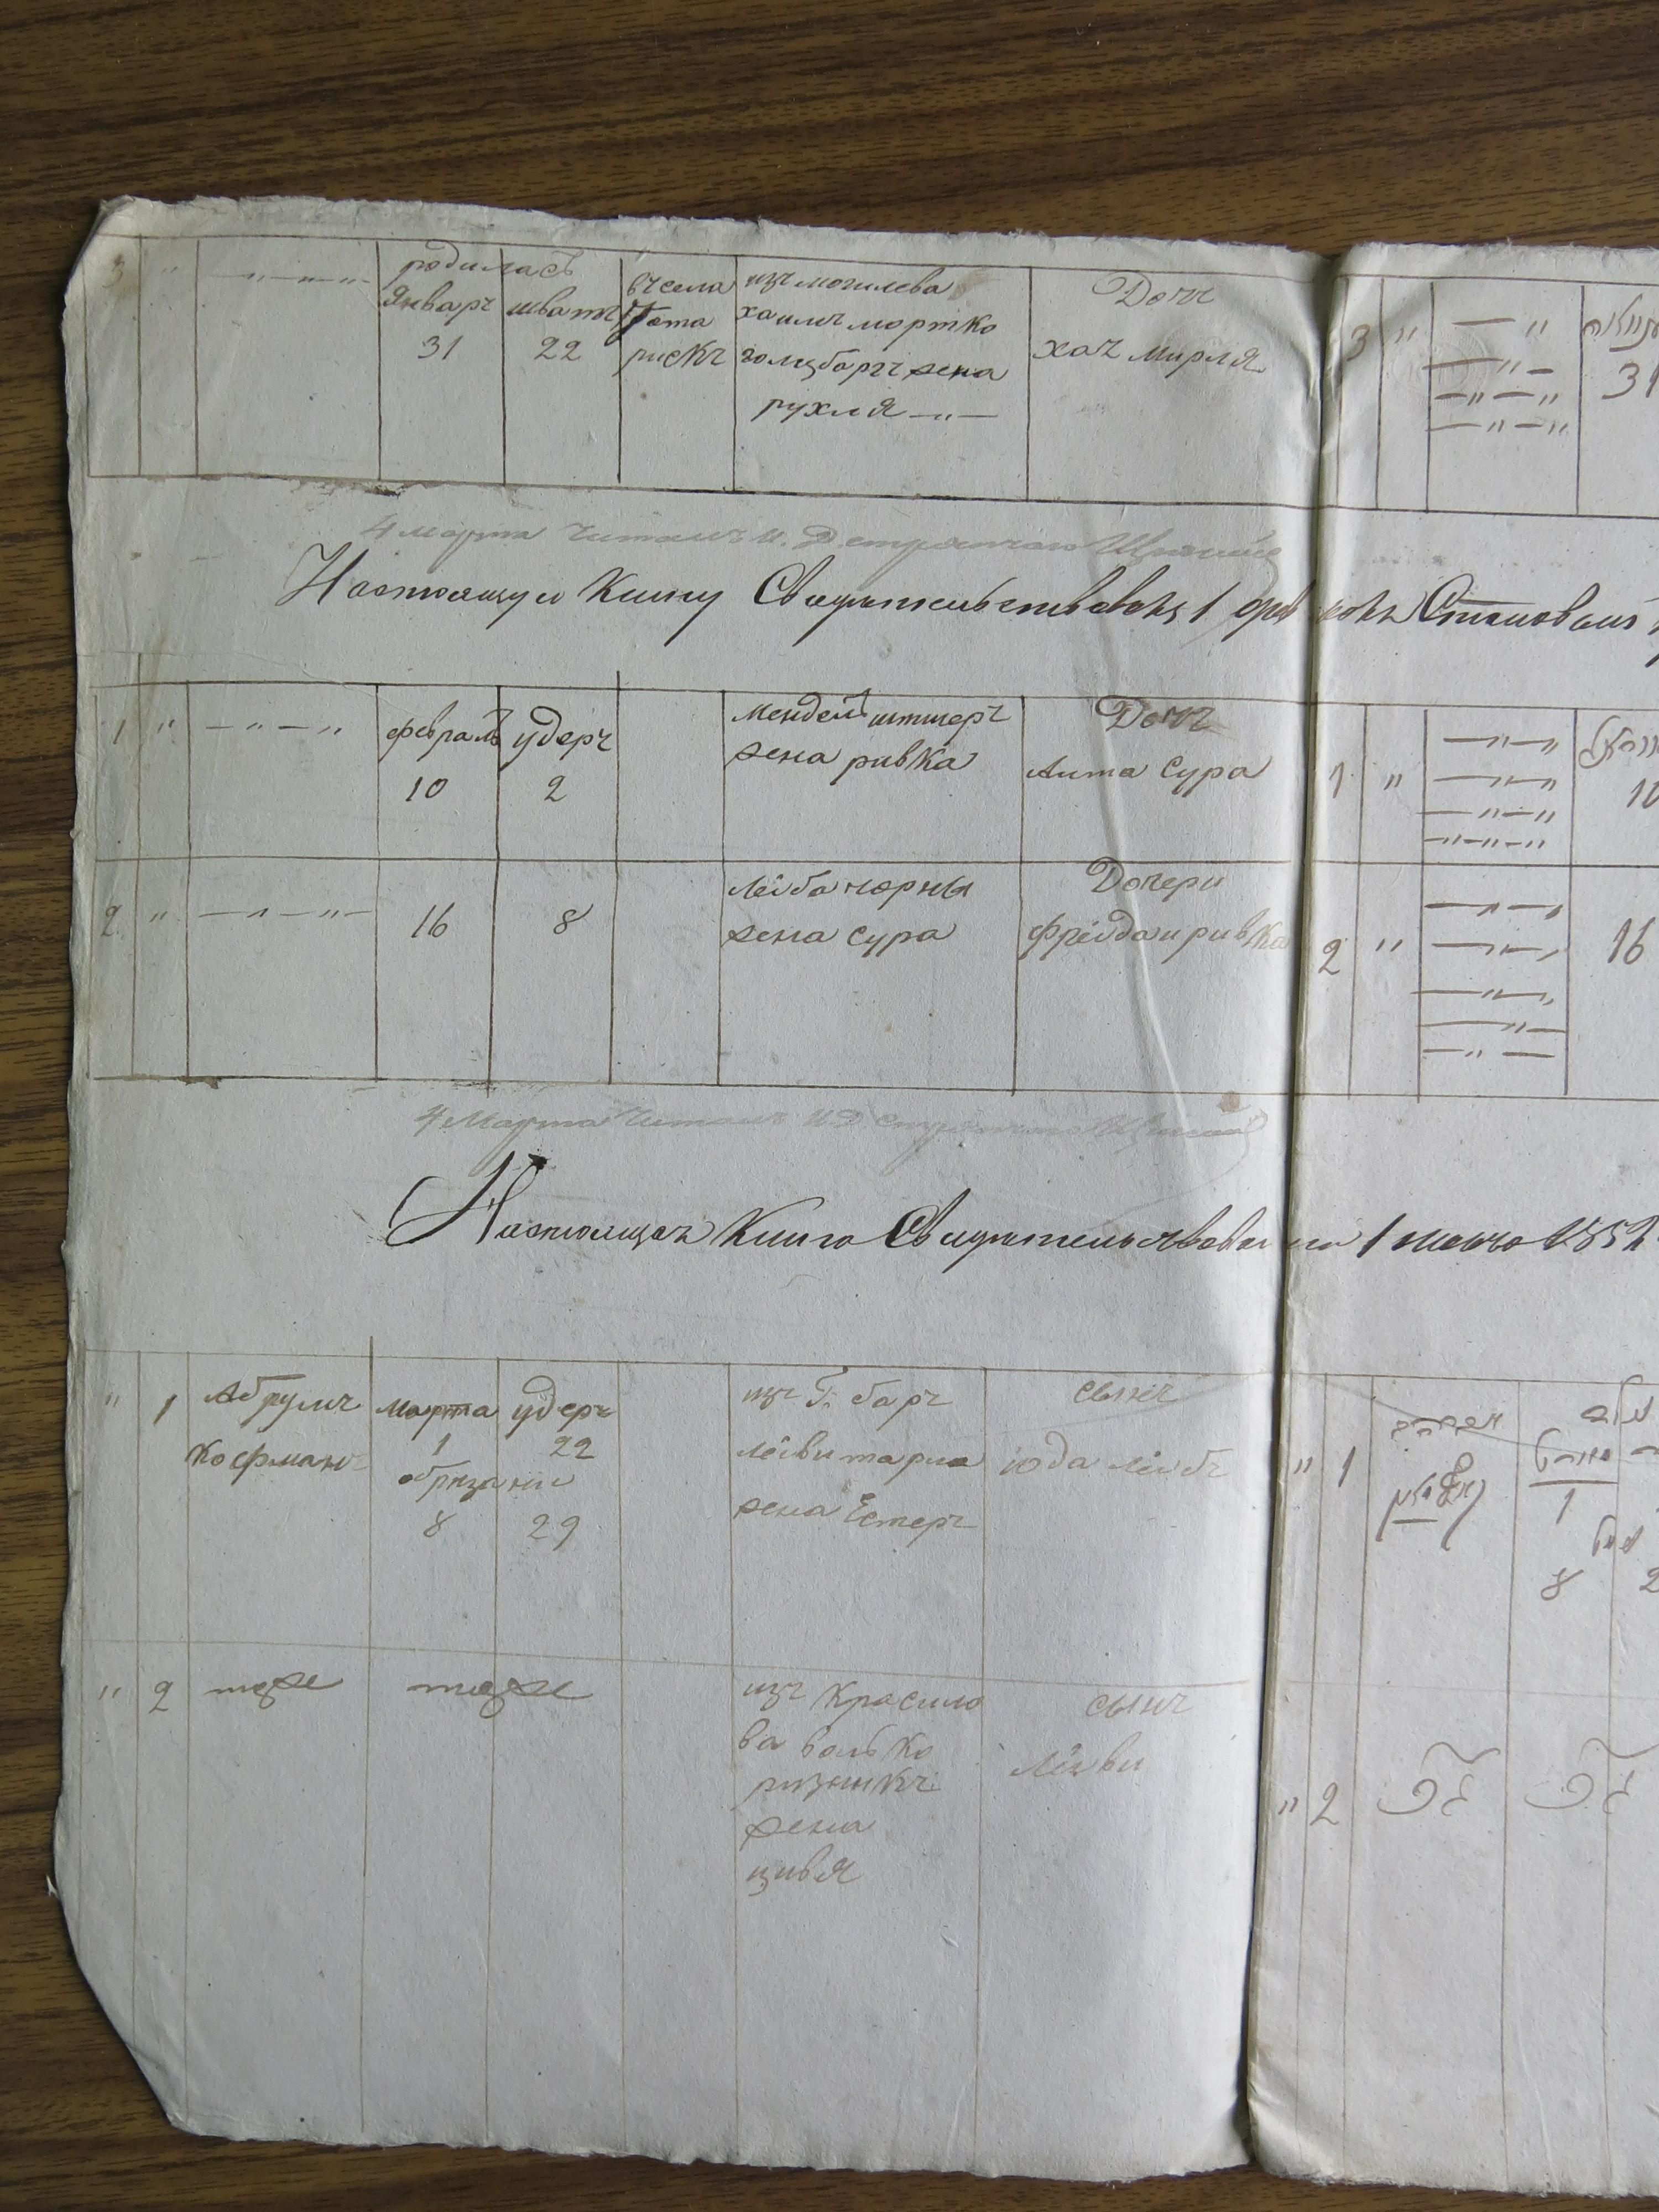 3 " —"—"—"— родилась
январъ шватъ
31 22
въ села
Пота
рискъ
изъ могилева
хаимъ мортко
голцбаргъ жена
рухля —"—
Дочъ
хаъ мирля
3 " — "
— " —
— " — "
— " — "
31
4 марта читалъ И. Д. стряпчаго
Настоящую Книгу Свидетельствовалъ 1 февраля Становый
1 " —"—"
февраль удеръ
10 2
мендель штилеръ
жена ривка
Дочъ
Аита Сура
1 " —"—"
—"—"
—"—"
—"—"—"
10
2 " —"—"—
16 8
Лейба чорны
жена сура
Дочери
фрейда и ривка
2 " —"—"
—"—"
—"—"
—"—
—"—
16
4 Марта читалъ И. Д. стряпчаго
Настоящая Книга Свидетельствована 1 марта 1852
" 1 Абрумъ
Кофманъ
марта удеръ
1 22
обрезании
8 29
изъ Г. баръ
лейви
жена Естеръ
сынъ
юда лейбъ
" 1
1
8 2
" 2 тоже тоже
изъ Красило
ва волько
жена
цивя
сынъ
Лейви
" 2